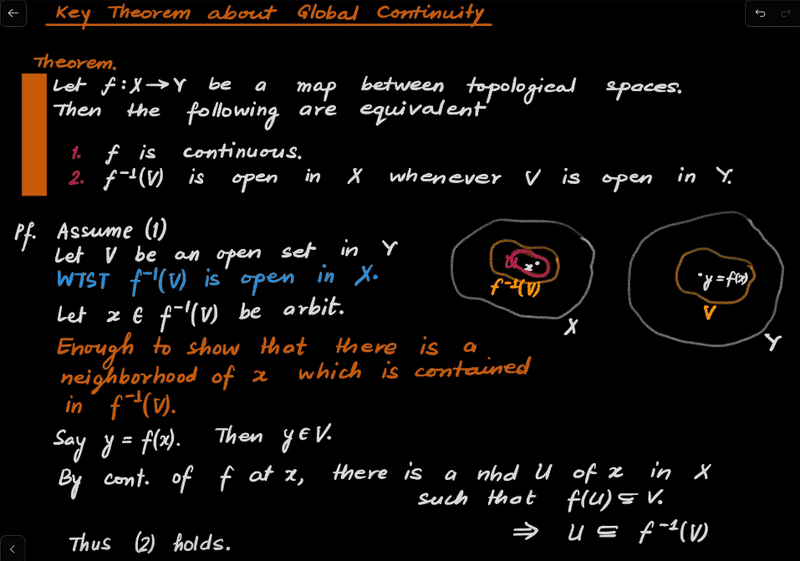 Key Theorem about Global Continuity
Theorem.
Let f : X → Y be a map between topological spaces.
Then the following are equivalent
1. f is continuous.
2. f⁻¹(V) is open in X whenever V is open in Y.
Pf. Assume (1)
Let V be an open set in Y
WTST f⁻¹(V) is open in X.
Let x ∈ f⁻¹(V) be arbit.
Enough to show that there is a
neighborhood of x which is contained
in f⁻¹(V).
Say y = f(x). Then y ∈ V.
By cont. of f at x, there is a nhd U of x in X
such that f(U) ⊆ V.
⇒ U ⊆ f⁻¹(V)
Thus (2) holds.
U x
f⁻¹(V)
X
y = f(x)
V
Y